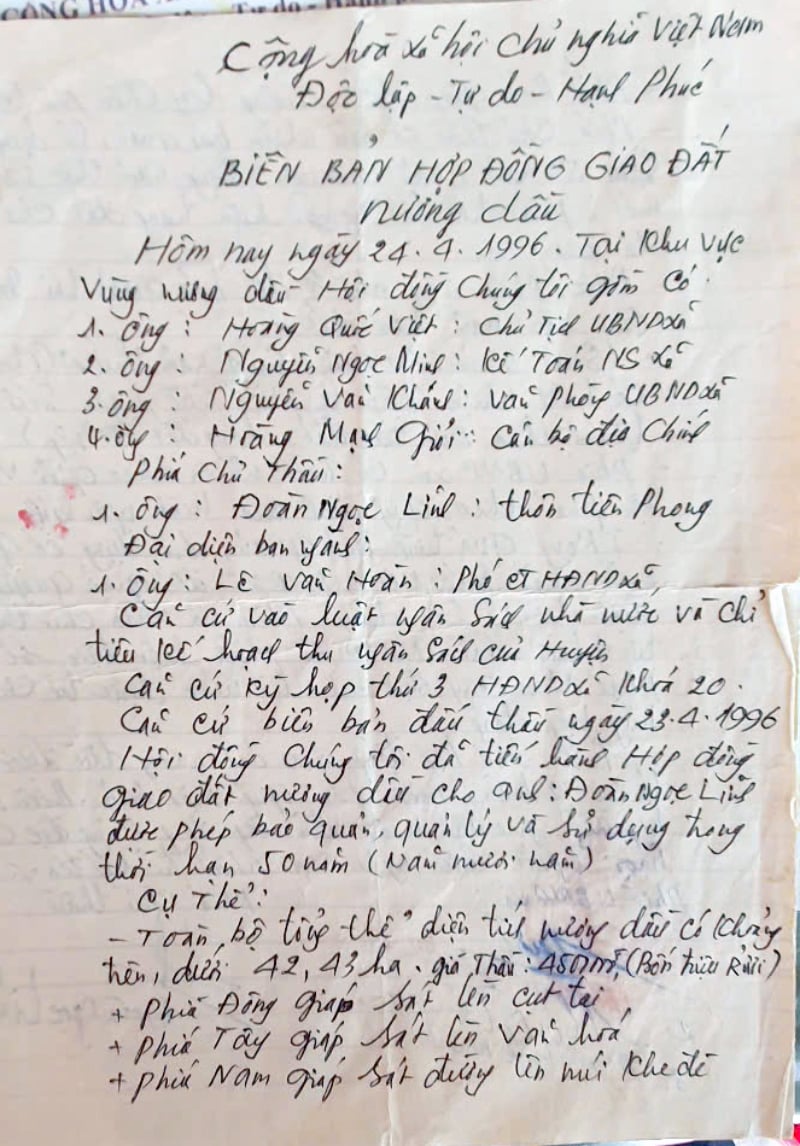 CỘNG HOÀ
Tự do - Hạnh
Cộng hoà xã hội chủ nghĩa Việt Nam
Độc lập - Tự do - Hạnh Phúc
BIÊN BẢN HỢP ĐỒNG GIAO ĐẤT
nương dâu
Hôm nay ngày 24.4.1996. Tại Khu vực
Vùng nương dâu Hội đồng Chúng tôi gồm có.
1. ông: Hoàng Quốc Việt: Chủ Tịch UBNDxã
2. ông: Nguyễn Ngọc Minh: Kế Toán NS xã
3. ông: Nguyễn Văn Khánh: Văn phòng UBNDxã
4. ông: Hoàng Mạnh Giới: Cán bộ địa Chính
Phía Chủ Thầu:
1. ông: Đoàn Ngọc Linh: thôn tiên Phong
Đại diện ban ngành:
1. Ông: Lê Văn Hoàn: Phó CT HĐNDxã,
Căn cứ vào luật ngân Sách nhà nước và chỉ
tiêu Kế hoạch thu ngân Sách của Huyện
Căn cứ Kỳ họp thứ 3 HĐNDxã Khoá 20.
Căn cứ biên bản đấu thầu ngày 23.4.1996
Hội đồng Chúng tôi đã tiến hành Hợp đồng
giao đất nương dâu cho anh: Đoàn Ngọc Linh
được phép bảo quản, quản lý và sử dụng trong
thời hạn 50 năm (Năm mươi năm)
Cụ Thể:
- Toàn bộ tổng thể diện tích nương dâu có Khoảng
trên, dưới 42,43 ha. giá Thầu: (Bốn triệu Rưỡi)
+ Phía Đông giáp sát lèn cụt tai
+ Phía Tây giáp sát lèn Văn hoá
+ Phía Nam giáp sát đường lên núi Khe đè